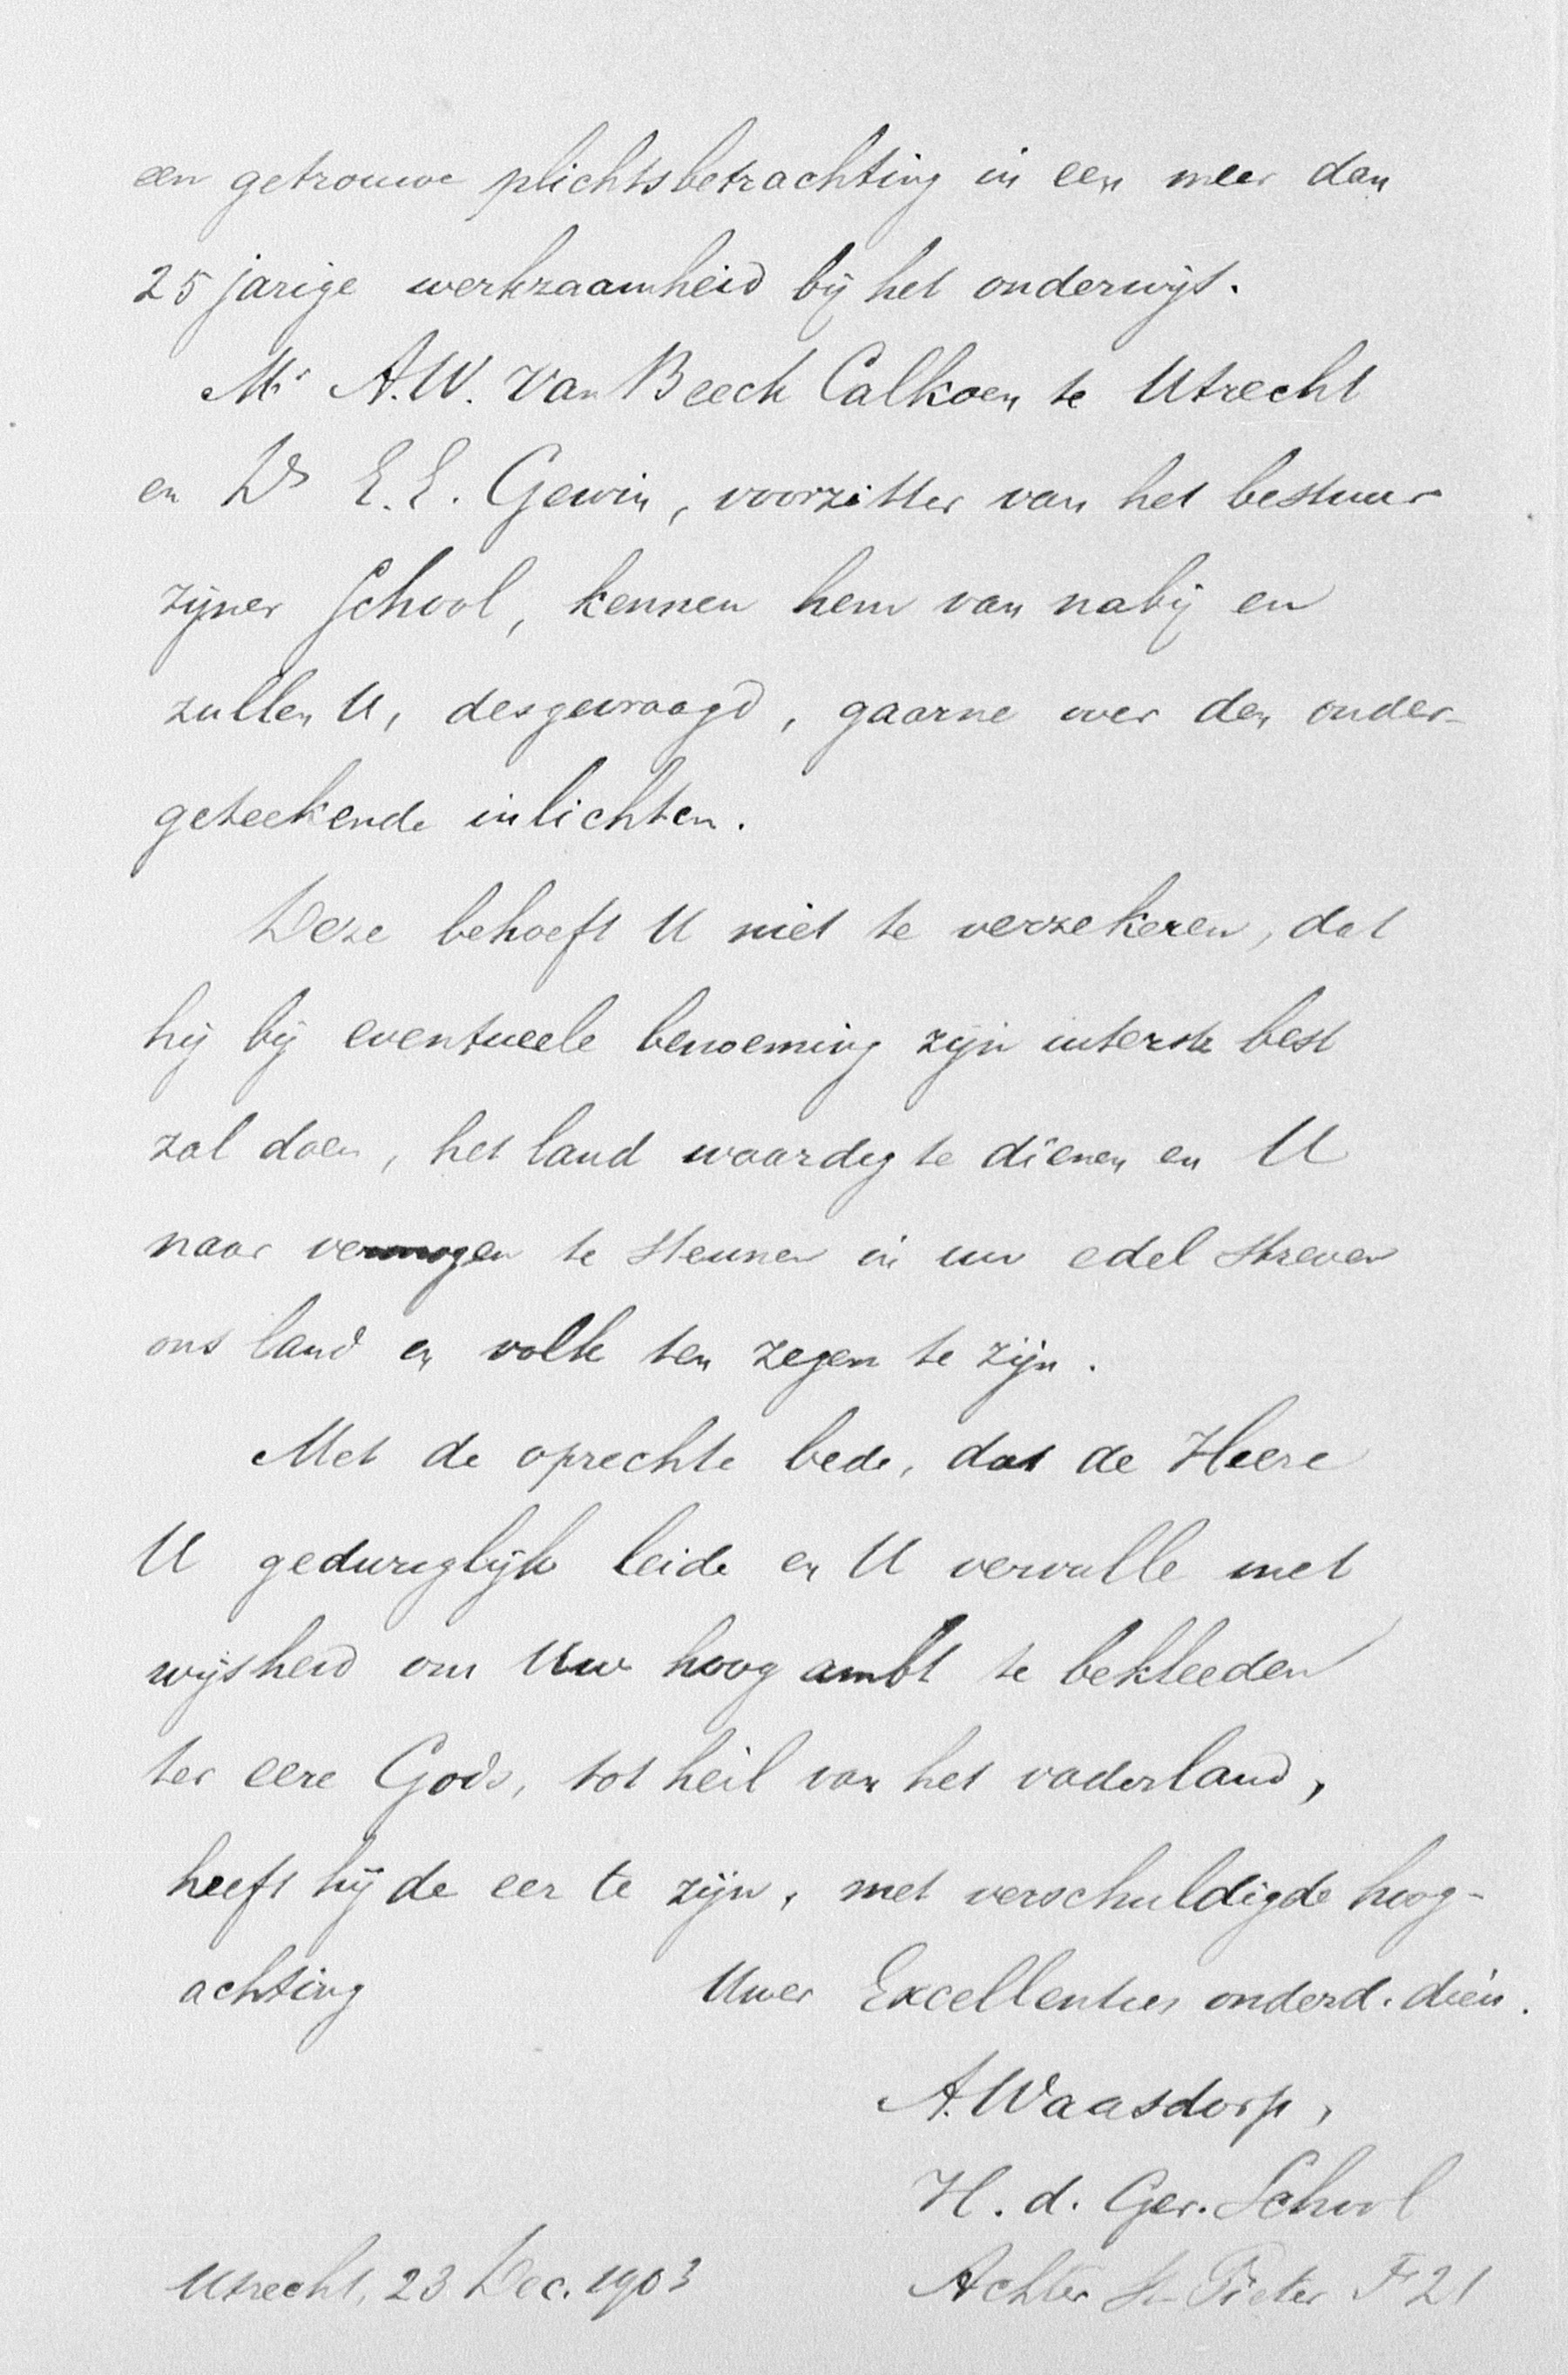 een getrouwe plichtsbetrachting in een meer dan
25 jarige werkzaamheid bij het onderwijs.
Mr A.W. van Beeck Calkoen te Utrecht
en Ds E.E. Gewin, voorzitter van het bestuur
zijner School, kennen hem van nabij en
zullen U, desgevraagd, gaarne over den onder-
geteekende inlichten.
Deze behoeft U niet te verzekeren, dat
hij bij eventueele benoeming zijn uiterste best
zal doen, het land waardig te dienen en U
naar vermogen te steunen in uw edel streven
ons land en volk ten zegen te zijn.
Met de oprechte bede, dat de Heere
U geduriglijk leide en U vervulle met
wijsheid om Uw hoog ambt te bekleeden
ter eere Gods, tot heil van het vaderland,
heeft hij de eer te zijn, met verschuldigde hoog-
achting Uwer Excellenties onderd. dien.
A. Waasdorp,
H. d. Ger. School
Utrecht, 23 Dec. 1903 Achter St Pieter F 21